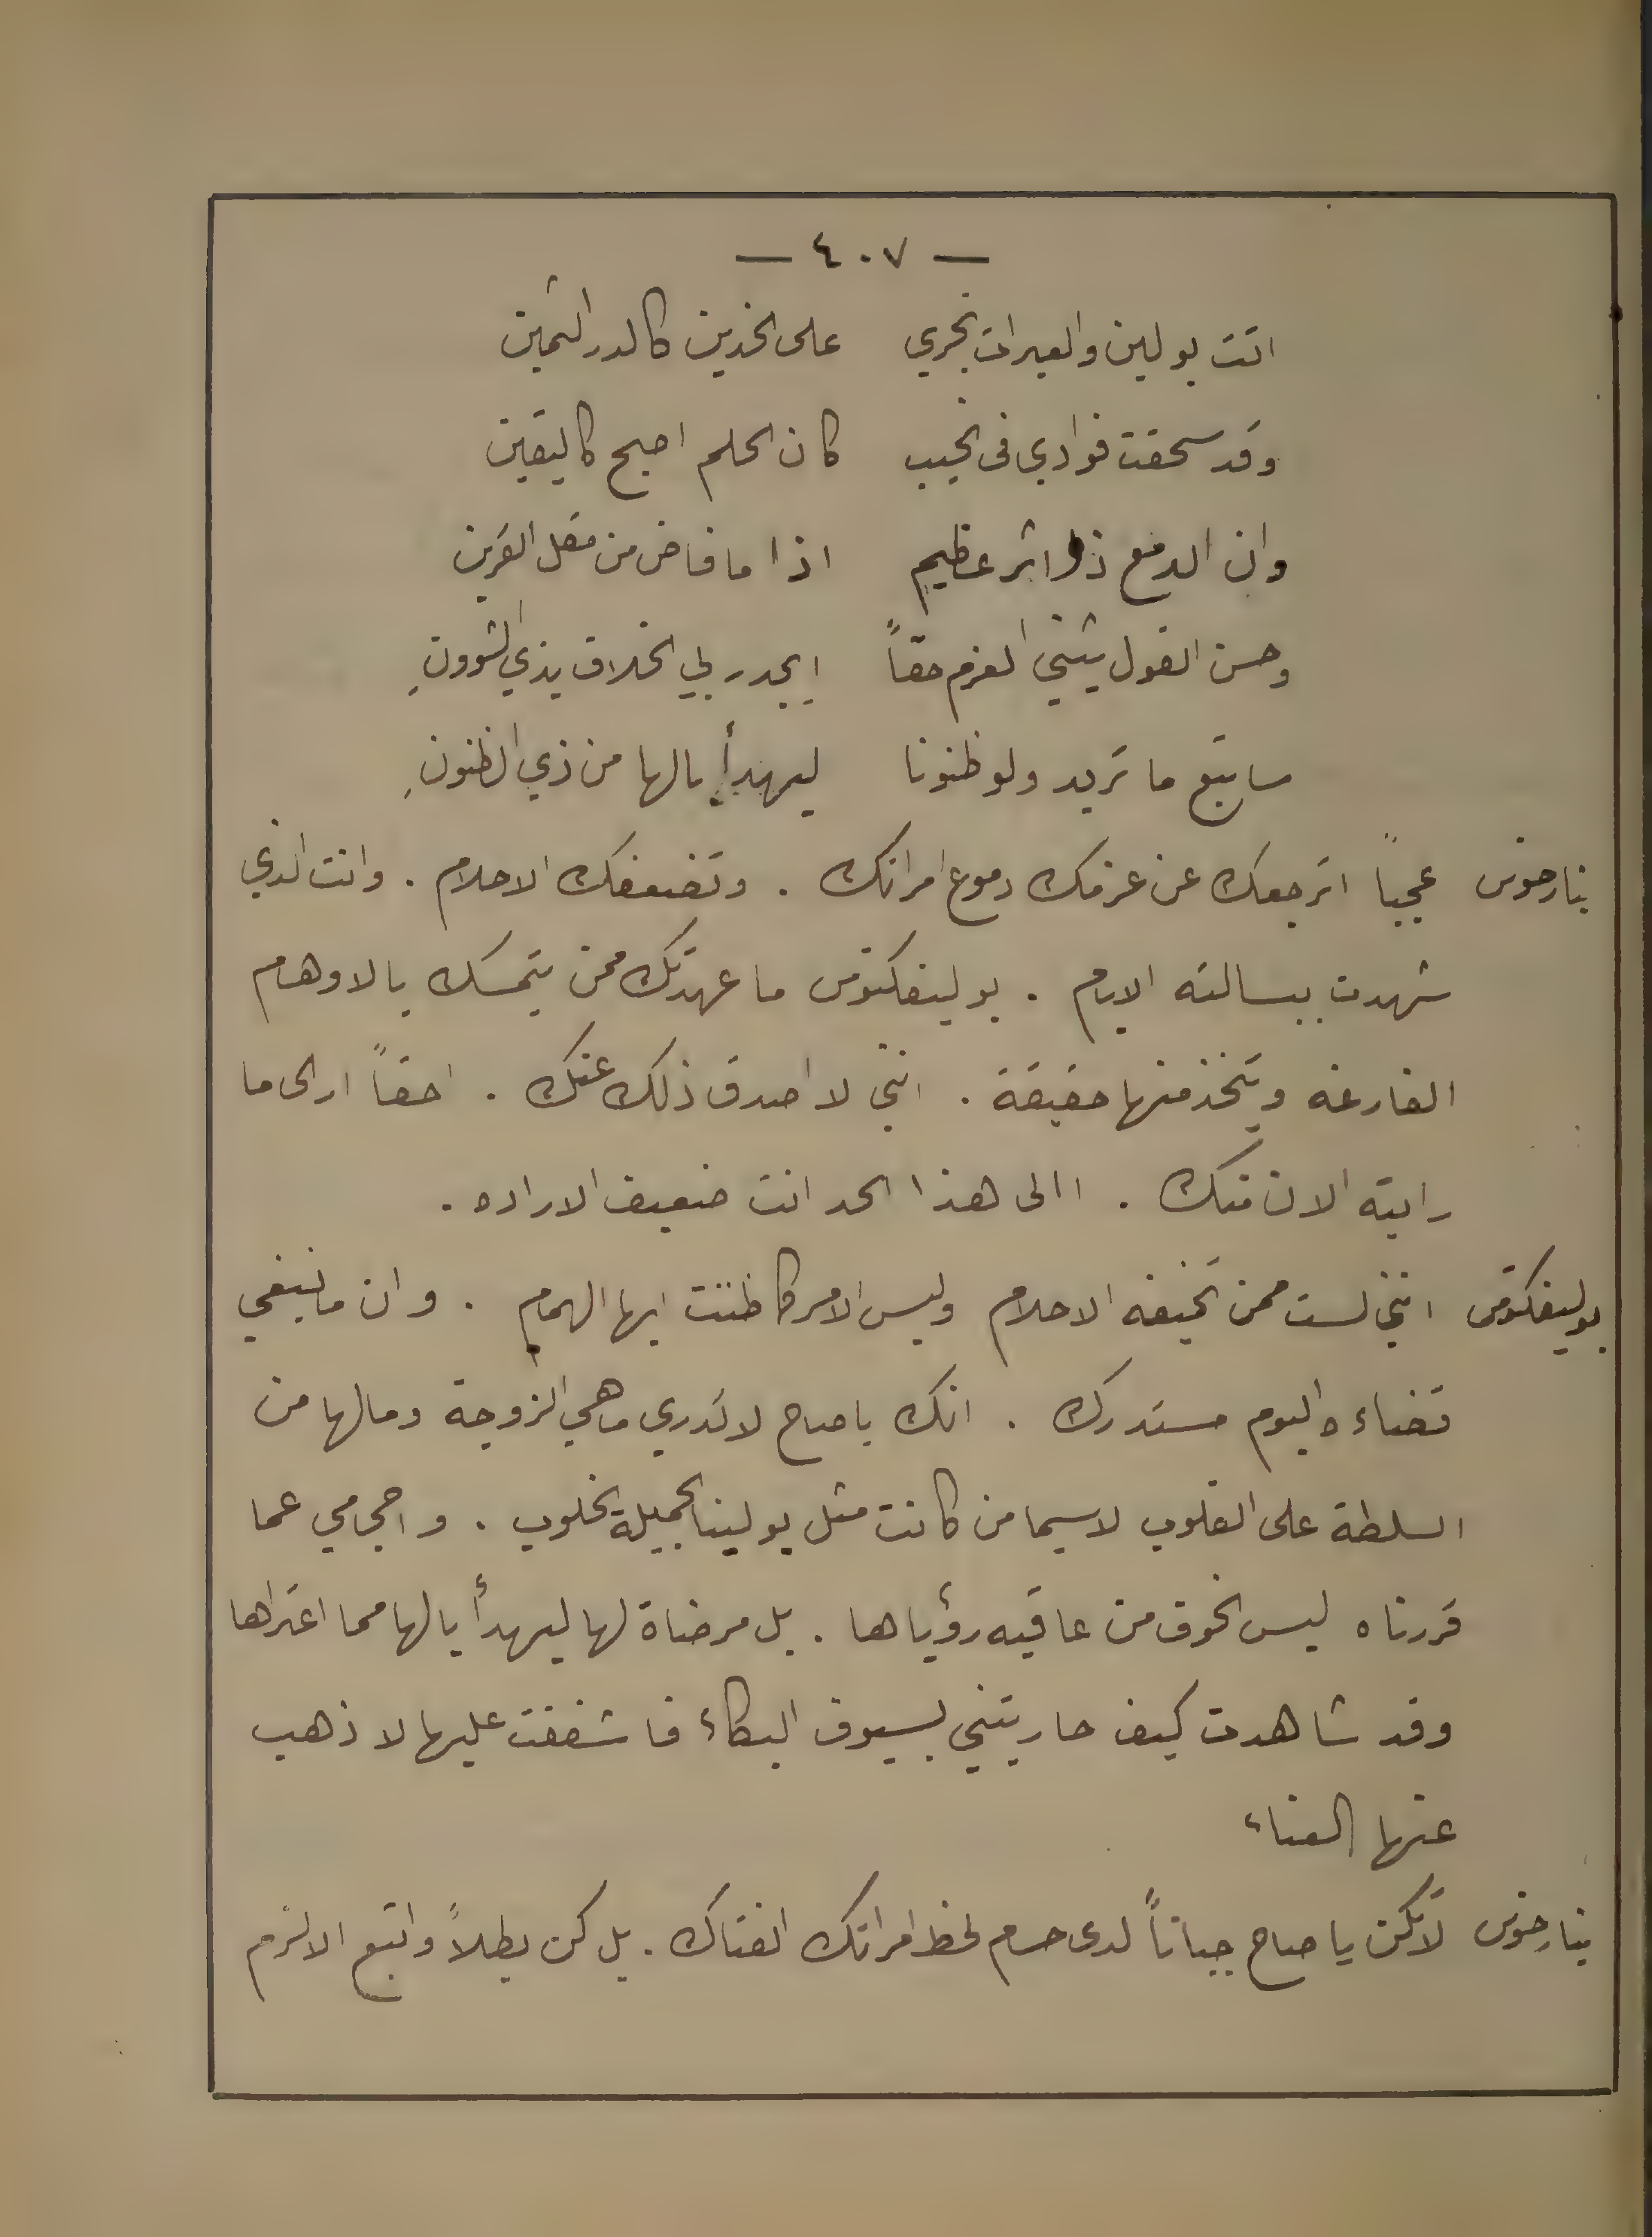 — ٤٠٧ —
اتت بولين والعبرات تجري على الخدين كالدر الثمين
وقد سحقت فوادي في نحيب كان الحلم اصبح كاليقين
وان الدمع ذو اثر عظيم اذا ما فاض من مقل القرين
وحسن القول يثني العزم حقاً ايجدر بي الخلاف بذي الشوونِ
ساتبع ما تريد ولو ظنونا ليهدأ بالها من ذي الظنونِ
ينارخوس عجباً اترجعك عن عزمك دموع امراتك . وتضعفك الاحلام . وانت الذي
شهدت ببسالته الايام . بوليفكتوس ما عهدتك ممن يتمسك بالاوهام
الفارغه ويتخذ منها حقيقة . انني لا اصدق ذلك عنك . احقاً ارى ما
رايته الان منك . االى هذا الحد انت ضعيف الاراده .
بوليفكتوس انني لست ممن تخيفه الاحلام وليس الامر كما ظننت ايها الهمام . وان ما نبغي
قضاءه اليوم مستدرك . انك يا صاح لا تدري ما هي الزوجة وما لها من
السلطة على القلوب لاسيما من كانت مثل بولينا الجميلة الخلوب . واحجامي عما
قررناه ليس الخوف من عاقبه رؤياها . بل مرضاة لها ليهدأ بالها مما اعتراها
وقد شاهدت كيف حاربتني بسيوف البكاء فاشفقت عليها لاذهب
عنها العناء
ينارخوس لا تكن يا صاح جباناً لدى حسام لحظ امراتك الفتاك . بل كن بطلاً واتبع الالزم